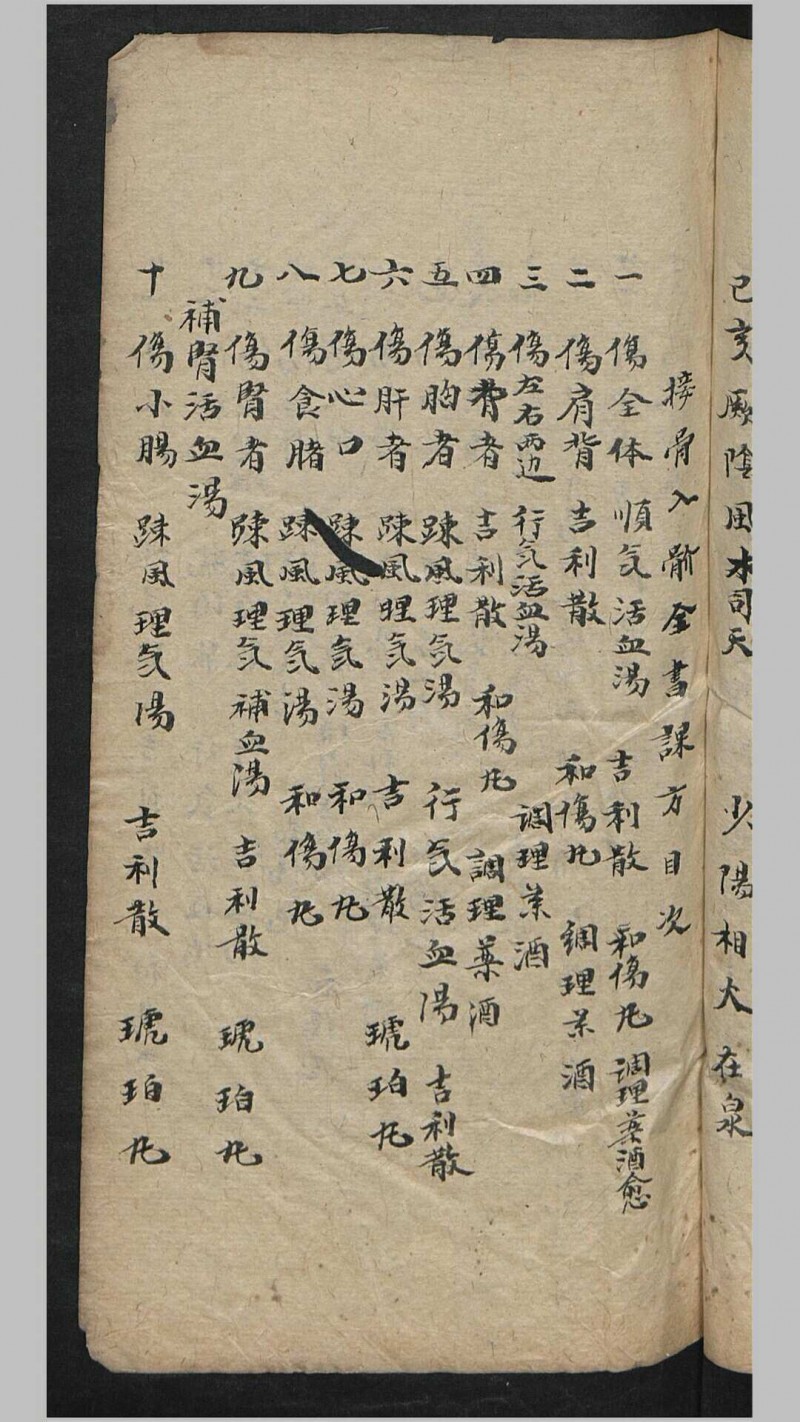 己亥厥陰風木司天　少陽相火在泉
接骨入骱全書課方目次
一　傷全体　順気活血湯　吉利散　和傷丸　調理薬酒愈
二　傷肩背　吉利散　和傷丸　調理茶酒
三　傷左右两边　行気活血湯　調理茶酒
四　傷背者　吉利散　和傷丸　調理薬酒
五　傷胸者　踈風理気湯　行気活血湯　吉利散
六　傷肝者　踈風理気湯　吉利散　琥珀丸
七　傷心口　踈風理気湯　和傷丸
八　傷食腊　踈風理気湯　和傷丸
九　傷腎者　踈風理気　補血湯　吉利散　琥珀丸
補腎活血湯
十　傷小腸　踈風理気湯　吉利散　琥珀丸